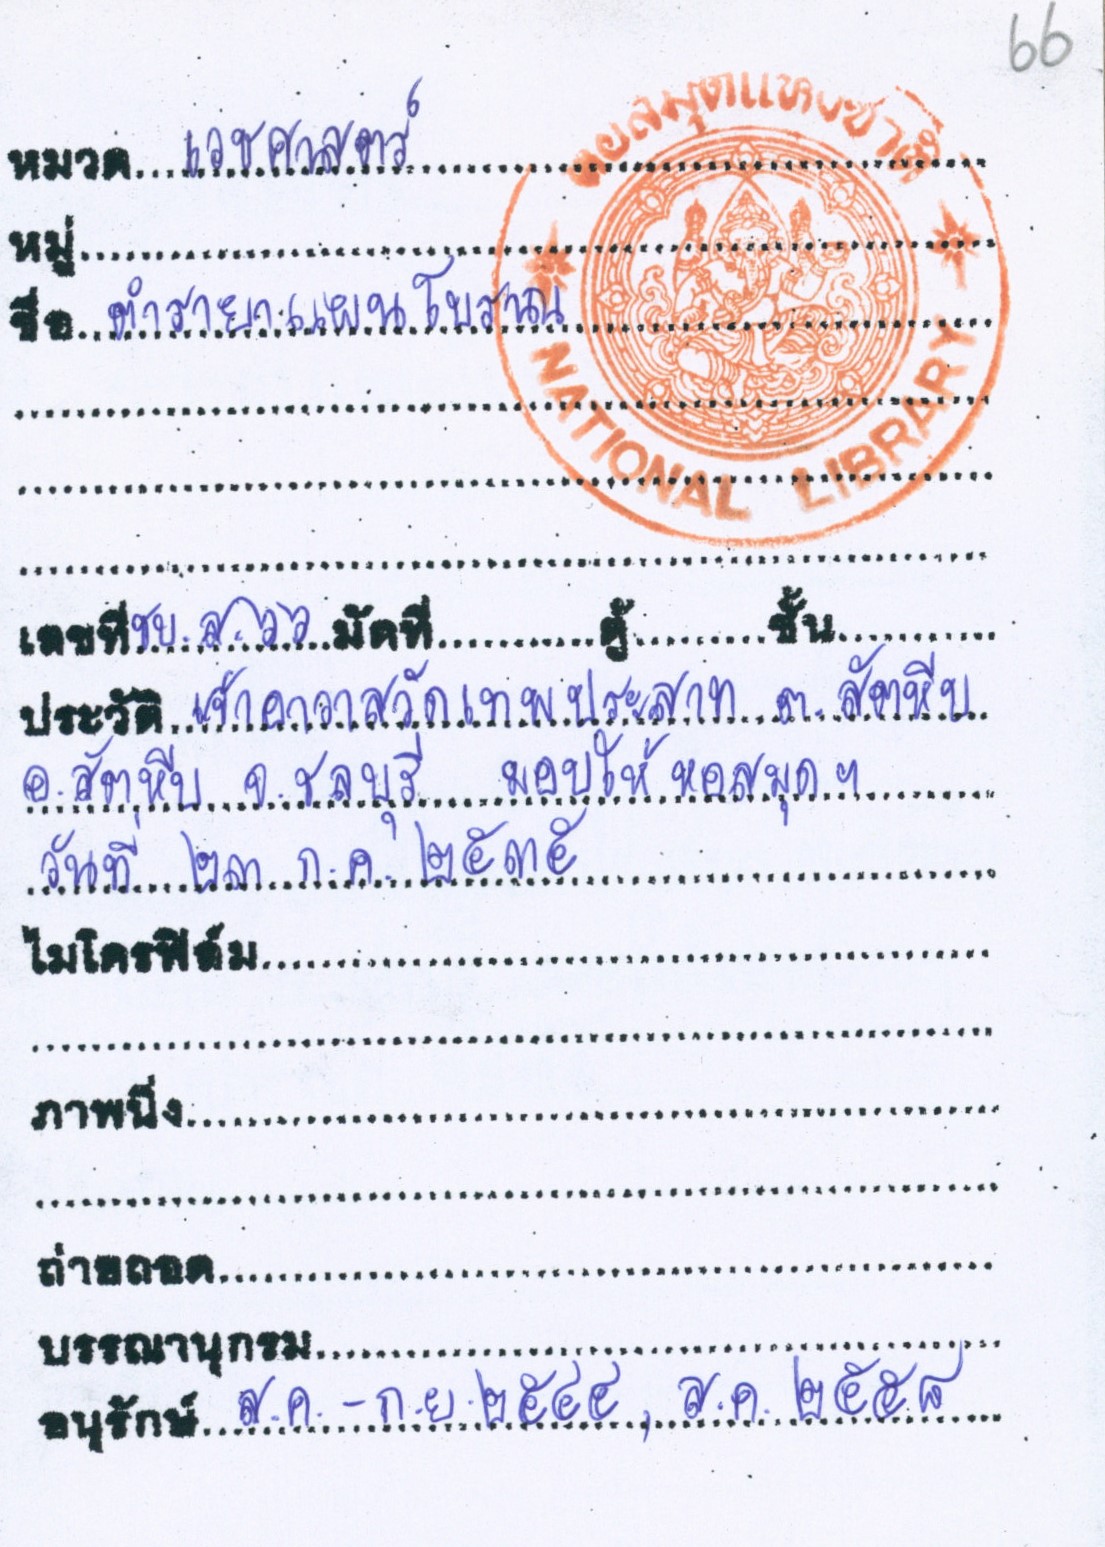 66
หอสมุดแห่งชาติ
NATIONAL LIBRARY
หมวด เวชศาสตร์
หมู่
ชื่อ ตำรายาแผนโบราณ
เลขที่ ชบ.ส. ๖๖ มัดที่ ตู้ ชั้น
ประวัติ เจ้าอาวาสวัดเทพประสาท ต. สัตหีบ
อ. สัตหีบ จ. ชลบุรี มอบให้ หอสมุดฯ
วันที่ ๒๓ ก.ค. ๒๕๓๕
ไมโครฟิล์ม
ภาพนิ่ง
ถ่ายถอด
บรรณานุกรม
อนุรักษ์ ส.ค. - ก.ย. ๒๕๔๔, ส.ค. ๒๕๕๘